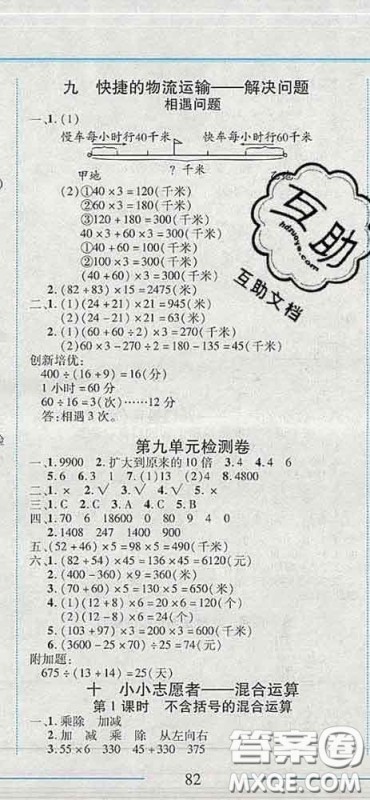 九 快捷的物流运输——解决问题
相遇问题
一、1.(1)
慢车每小时行40千米 快车每小时行60千米
? 千米
甲地
(2)①40×3=120(千米)
②60×3=180(千米)
③120+180=300(千米)
①40+60=100(千米)
②100×3=300(千米)
(40+60)×3=300(千米)
2.(82+83)×15=2475(米)
二、1.(1)(24+21)×21=945(米)
(2)(24-21)×21=63(米)
2.(1)(60+60÷2)×3=270(千米)
(2)60×3-270÷2=180-135=45(千米)
创新培优:
400÷(16+9)=16(分)
1小时=60分
60÷16=3(次)……12分
答:相遇3次。
第九单元检测卷
一、1.9900 2.扩大到原来的10倍 3.4 4.6
5.6 6.8 5 7.(1)13 (2)4 8.4800
二、1.× 2.√ 3.√ 4.√ 5.×
三、1.C 2.C 3.A 4.C 5.B
四、1.70 6 18600 0 80 9 4 0
2.1408 247 1400 900
五、(52+46)×5=98×5=490(千米)
六、1.(82+54)×45=136×45=6120(元)
2.(400-360)×9=360(米)
3.(70+60)×5=650(米)
4.(1)(12+8)×6=20×6=120(个)
(2)(12-8)×6=4×6=24(个)
5.(103+97)×4=200×4=800(米)
6.(3600-25×70)÷25=74(元)
附加题:
675÷(13+14)=25(天)
十 小小志愿者——混合运算
第1课时 不含括号的混合运算
一、1.乘除 加减
2.加 减 乘 除 从左向右
3.55×6 330 45+330 375
82
互助
hdzuoye.com
互助文档
答案圈
MXQE.COM